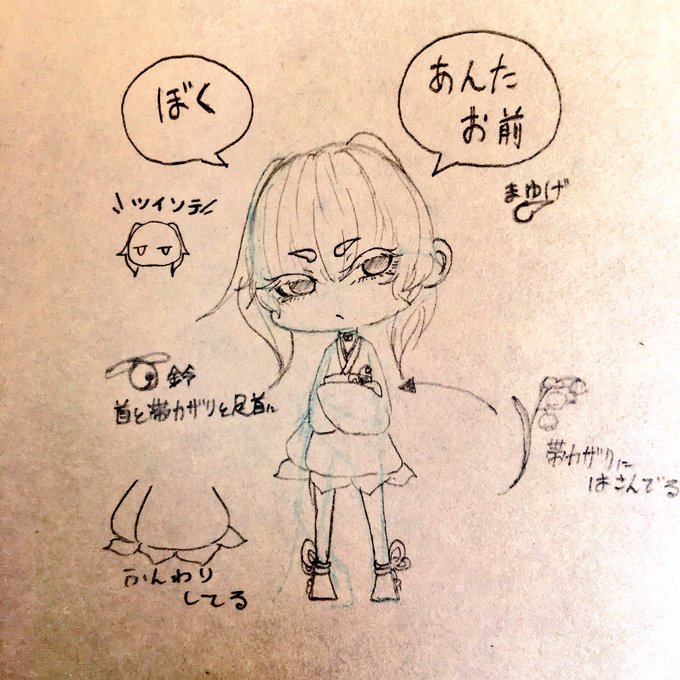 ぼく
あんた
お前
まゆげ
ツインテ
鈴
首と帯カザリと足首に
帯カザリに
はさんでる
ふんわり
してる